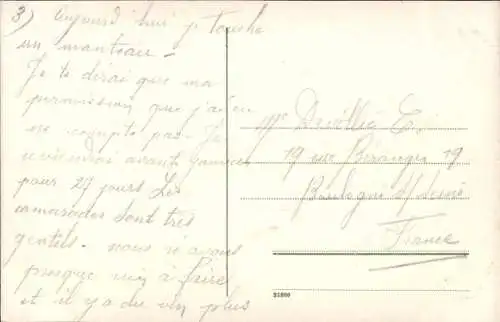 3) Aujourd'hui je touche
un manteau -
Je te dirai que ma
permission que j'ai eu
ne compte pas - Je
reviendrai avant
pour 27 jours Les
camarades sont très
gentils - nous n'avons
presque rien à faire
et il y a du vin plus
Me E.
19 rue Béranger 19
Boulogne s/ Seine
France